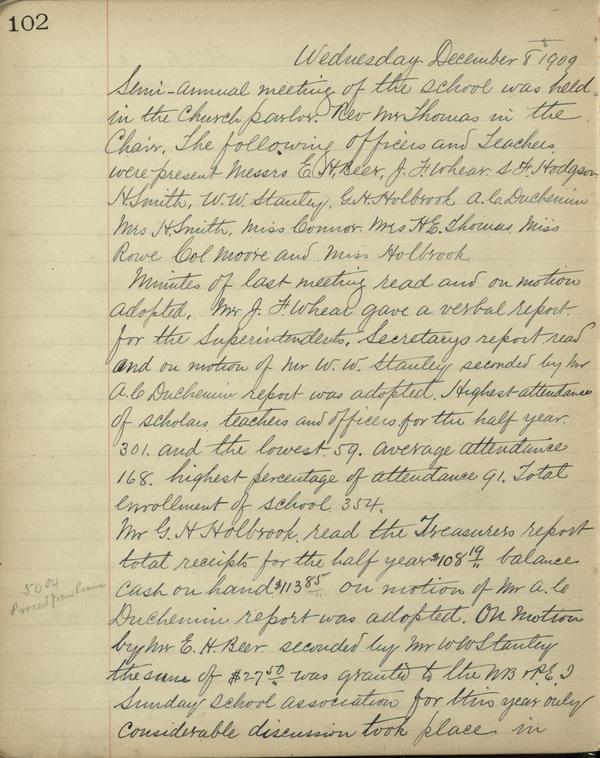 102
Wednesday December 8th 1909
Semi-annual meeting of the school was held
in the Church parlor. Rev Mr Thomas in the
Chair. The following officers and Teachers
were present Messrs E. H. Beer, J. F. Whear. S. F. Hodgson
H Smith, W. W. Stanley, G. H. Holbrook A. C. Duchemin
Mrs H. Smith, Miss Connor. Mrs H. E. Thomas. Miss
Rowe Col Moore and Miss Holbrook.
Minutes of last meeting read and on motion
adopted. Mr J. F. Whear gave a verbal report
for the Superintendents. Secretarys report read
and on motion of Mr W. W. Stanley seconded by Mr
A. C Duchemin report was adopted. Highest attendance
of scholars, teachers and officers for the half year.
301. and the lowest 59. average attendance
168. highest percentage of attendance 91. Total
enrollment of school. 354.
Mr G. H Holbrook. read the Treasurers report
total receipts for the half year $108 19 balance
cash on hand $113 85 on motion of Mr A. C
50.04
Proceed from
Duchemin report was adopted. On Motion
by Mr E. H Beer. seconded by Mr W W Stanley
the sum of $27 50 was granted to the N B & P. E. I
Sunday School association for this year only
Considerable discussion took place in